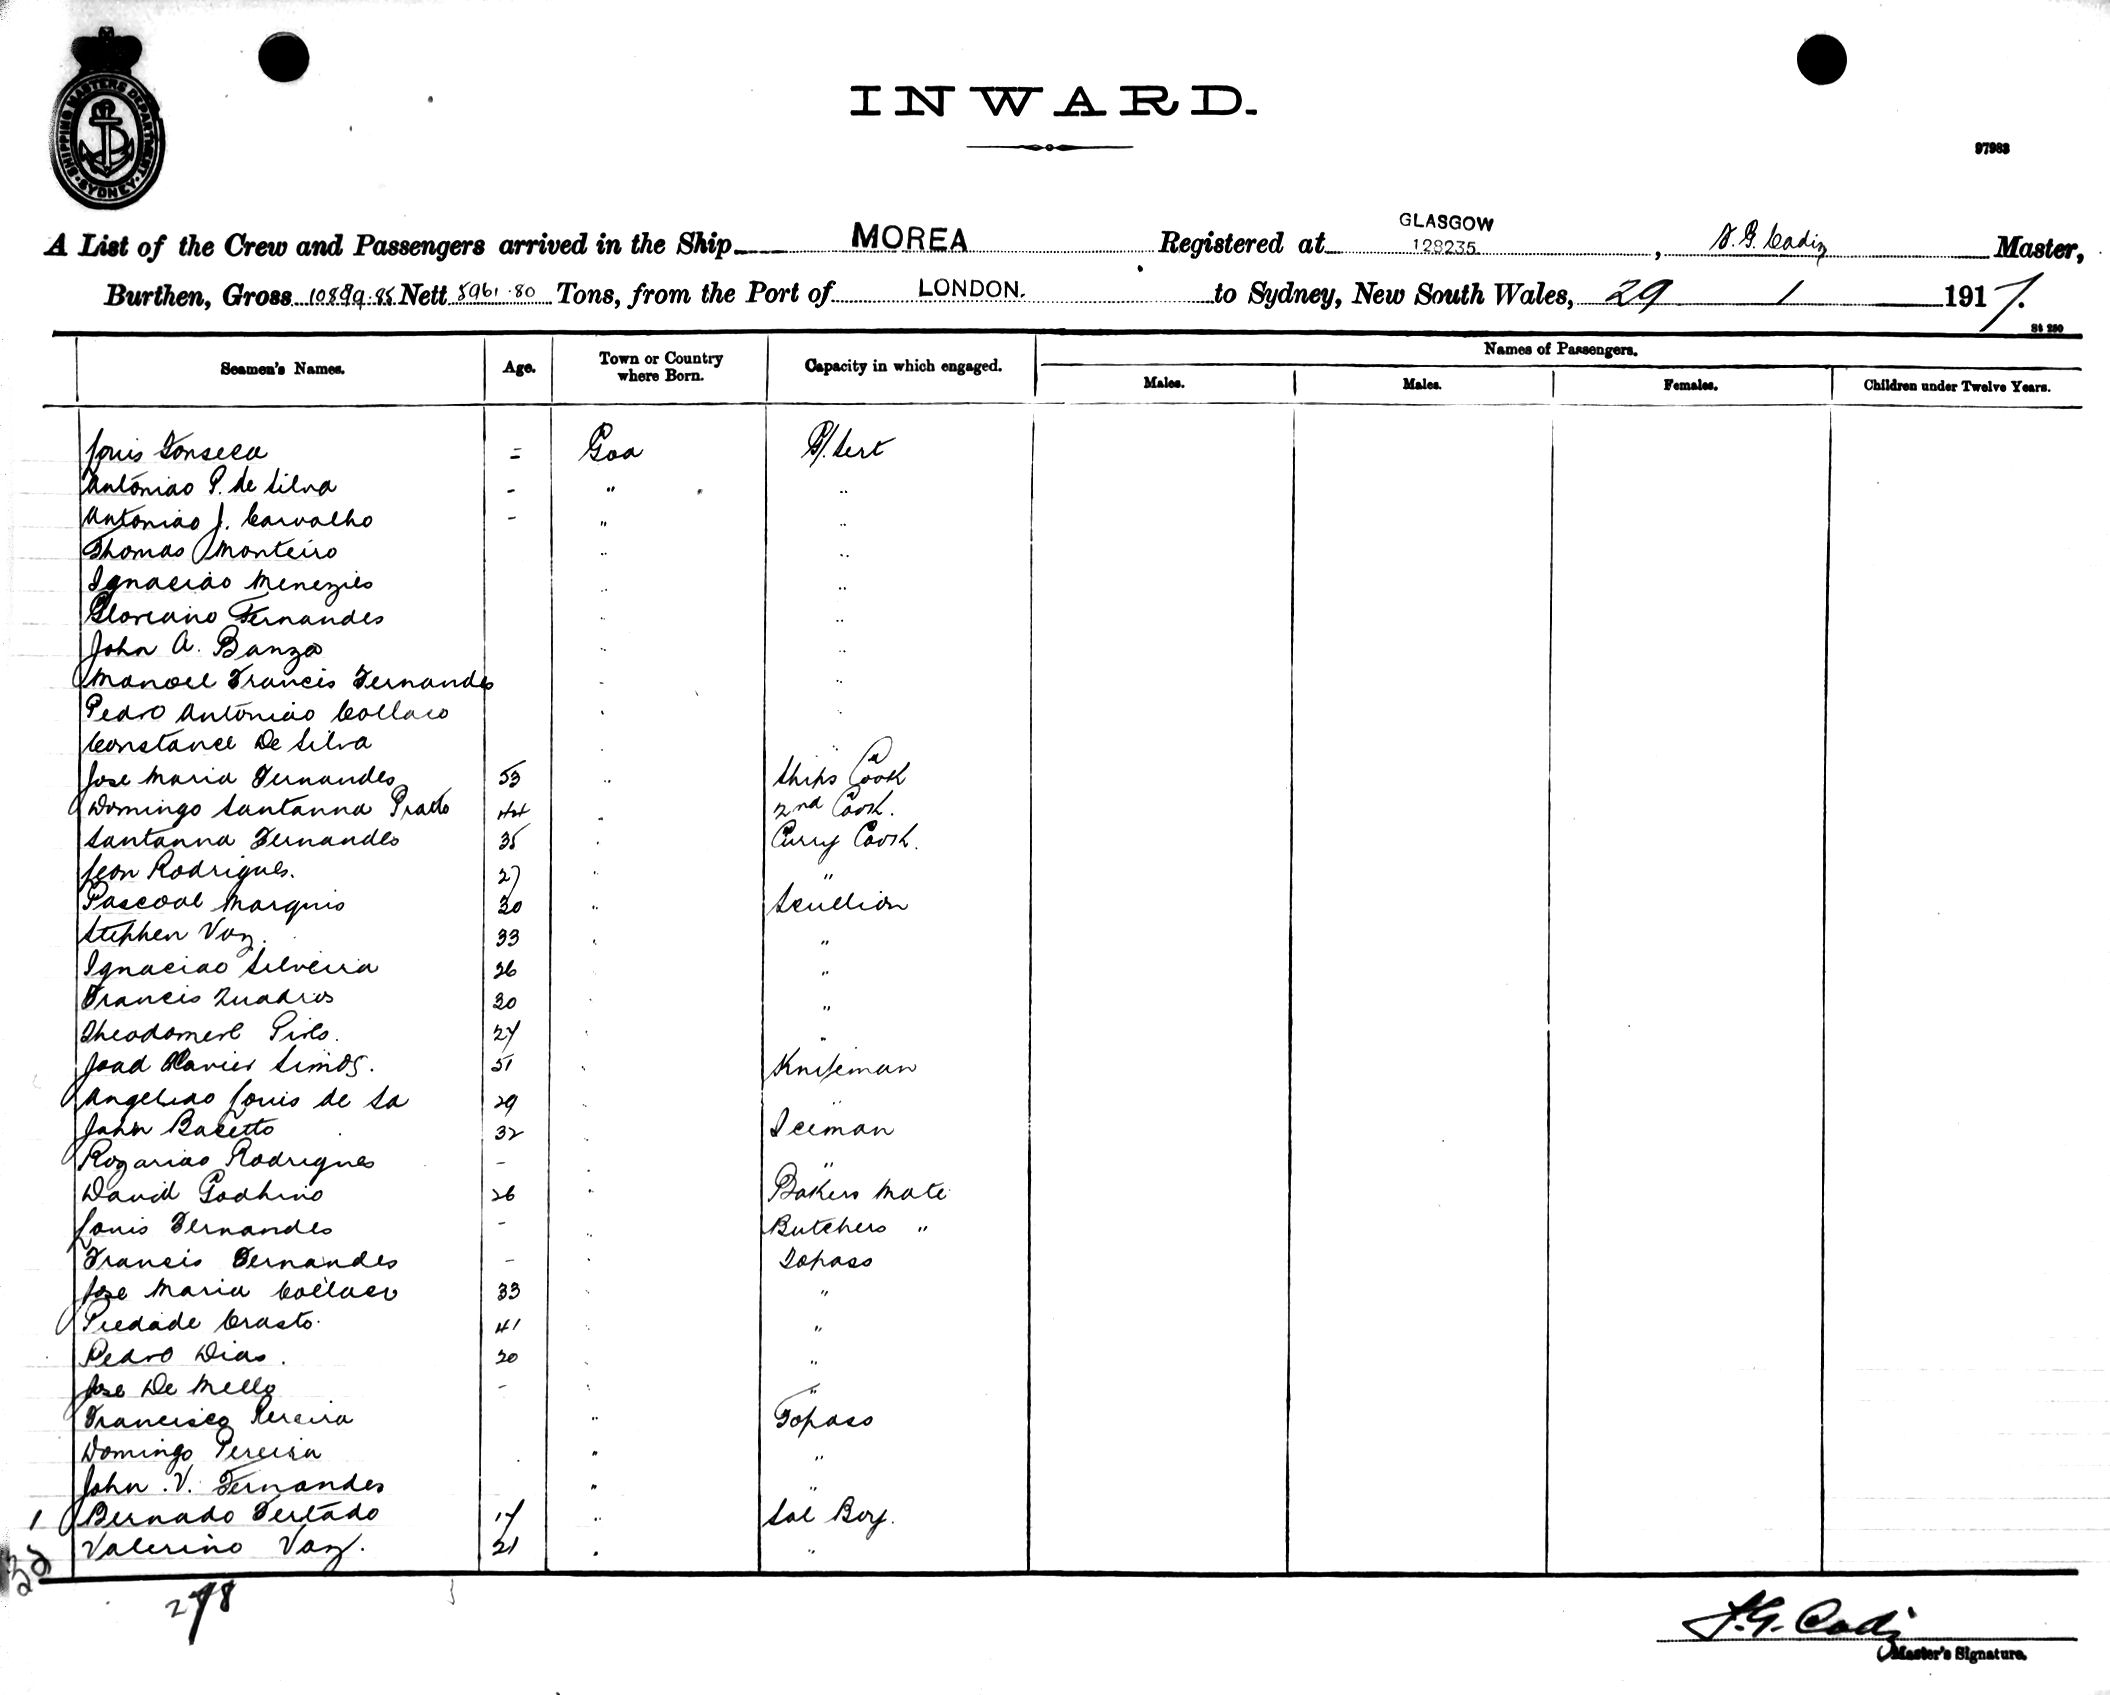 SHIPPING MASTERS DEPARTMENT SYDNEY
INWARD.
97983
A List of the Crew and Passengers arrived in the Ship MOREA Registered at GLASGOW 128235, Master,
Burthen, Gross Nett 5961.80 Tons, from the Port of LONDON. to Sydney, New South Wales, 29 1 1917.
St 250
Seamen's Names. Age. Town or Country where Born. Capacity in which engaged. Names of Passengers.
Males. Males. Females. Children under Twelve Years.
Louis Fonseca - Goa G/Sert
Antoniao P. de Silva - " "
Antoniao J. Carvalho - " "
Thomas Monteiro " "
Ignaciao Menezies " "
Floreano Fernandes " "
John A. Banza " "
Manoel Francis Fernandes " "
Pedro Antoniao Collaco " "
Constance De Silva " "
Jose Maria Fernandes 53 " Ships Cook
Domingo Santanna Pratto 44 " 2nd Cook.
Santanna Fernandes 35 " Curry Cook.
Leon Rodrigues. 27 " "
Pascoal Marquis 30 " Scullion
Stephen Vaz. 33 " "
Ignaciao Silveira 26 " "
Francis Quadros 30 " "
Pires. 27 " "
Joao Xavier Simos. 51 " Knifeman
Angeliao Louis de Sa 29 " "
John Bacetto 32 " Iceman
Rozariao Rodrigues - " "
David Godhino 26 " Bakers Mate
Louis Fernandes - " Butchers "
Francis Fernandes - " Topass
Jose Maria Collaco 33 " "
Piedade Crasto. 41 " "
Pedro Dias. 20 " "
Jose De Mello - " "
Francisco Pereira " Topass
Domingo Pereira " "
John V. Fernandes " "
1 Bernado Fertado 17 " Sal Boy.
Valerino Vaz. 21 " "
278
Master's Signature.